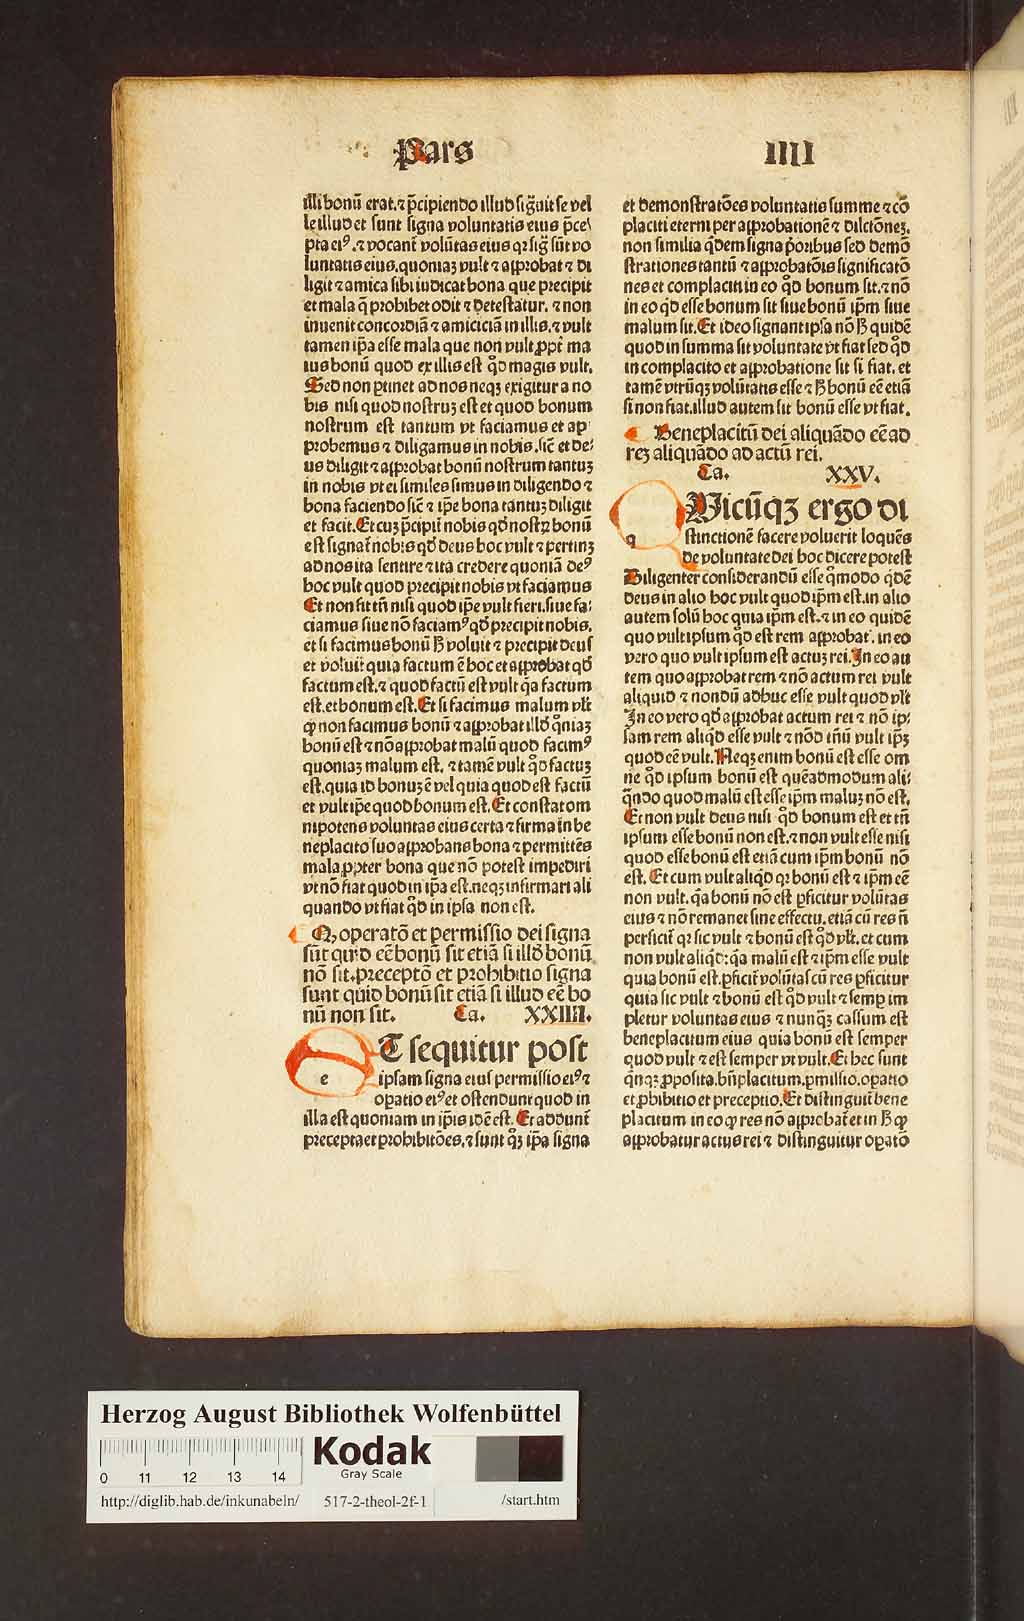 Pars IIII
illi bonū erat. ⁊ p̄cipiendo illud siḡuit se vel
le illud et sunt signa voluntatis eius p̄ce
pta eiꝰ. ⁊ vocant̄ volūtas eius qꝛ siḡ sūt vo
luntatis eius. quoniaꝫ vult ⁊ approbat ⁊ di
ligit ⁊ amica sibi iudicat bona que precipit
et mala q̄ prohibet odit ⁊ detestatur. ⁊ non
inuenit concordiā ⁊ amiciciā in illis. ⁊ vult
tamen ip̄a esse mala que non vult ꝓpt̄ ma
ius bonū quod ex illis est qd̄ magis vult.
Sed non ꝑtinet ad nos neqꝫ exigitur a no
bis nisi quod nostruꝫ est et quod bonum
nostrum est tantum vt faciamus et ap
probemus ⁊ diligamus in nobis. sic̄ et de
us diligit ⁊ approbat bonū nostrum tantuꝫ
in nobis vt ei similes simus in diligendo ⁊
bona faciendo sic̄ ⁊ ip̄e bona tantuꝫ diligit
et facit. Et cuꝫ p̄cipit̄ nobis qd̄ nostꝝ bonū
est signat̄ nobis qd̄ deus hoc vult ⁊ pertinꝫ
ad nos ita sentire ⁊ ita credere quoniā deꝰ
hoc vult quod precipit nobis vt faciamus
Et non fit tn̄ nisi quod ip̄e vult fieri. siue fa
ciamus siue nō faciamꝰ qd̄ precipit nobis.
et si facimus bonū ꝧ voluit ⁊ precipit deus
et voluit quia factum ē hoc et approbat qd̄
factum est. ⁊ quod factū est vult q̄a factum
est. et bonum est. Et si facimus malum vl̄t
ꝙ non facimus bonū ⁊ approbat illd̄ qm̄iaꝫ
bonū est ⁊ nō approbat malū quod facimꝰ
quoniaꝫ malum est. ⁊ tamē vult qd̄ factuꝫ
est. quia id bonuꝫ ē vel quia quod est factū
et vult ip̄e quod bonum est. Et constat om
nipotens voluntas eius certa ⁊ firma in be
neplacito suo approbans bona ⁊ permittēs
mala ꝓpter bona que nō potest impediri
vt nō fiat quod in ip̄a est. neqꝫ infirmari ali
quando vt fiat qd̄ in ipsa non est.
operatō et permissio dei signa
sūt quid eē bonū sit etiā si illd̄ bonū
nō sit. preceptō et prohibitio signa
sunt quid bonū sit etiā si illud eē bo
nū non sit. Ca. XXIIII.
ET sequitur post
e ipsam signa eius permissio eiꝰ ⁊
oꝑatio eiꝰ et ostendunt quod in
illa est quoniam in ip̄is idē est. Et addunt̄
precepta et prohibitōes. ⁊ sunt qꝫ ip̄a signa
et demonstratōes voluntatis summe ⁊ cō
placiti eterni per approbationē ⁊ dilctōneꝫ.
non similia qd̄em signa p̄oribus sed demō
strationes tantū ⁊ approbatōis significatō
nes et complaciti in eo qd̄ bonum sit. ⁊ nō
in eo qd̄ esse bonum sit siue bonū ip̄m siue
malum sit. Et ideo signant ipsa nō ꝧ quidē
quod in summa sit voluntate vt fiat sed qd̄
in complacito et approbatione sit si fiat. et
tamē vtrūqꝫ volūtatis esse ⁊ ꝧ bonū eē etiā
si non fiat. illud autem sit bonū esse vt fiat.
Beneplacitū dei aliquādo eē ad
reꝫ aliquādo ad actū rei.
Ca. XXV.
QVicūqꝫ ergo di
q stinctionē facere voluerit loquēs
de voluntate dei hoc dicere potest
Diligenter considerandū esse qm̄odo qd̄ē
deus in alio hoc vult quod ip̄m est. in alio
autem solū hoc quia ip̄m est. ⁊ in eo quidē
quo vult ipsum qd̄ est rem approbat. in eo
vero quo vult ipsum est actuꝫ rei. In eo au
tem quo approbat rem ⁊ nō actum rei vult
aliquid ⁊ nondū adhuc esse vult quod vl̄t
In eo vero qd̄ approbat actum rei ⁊ nō ip
sam rem aliqd̄ esse vult ⁊ nōd tn̄ū vult ip̄ꝫ
quod eē vult. Neqꝫ enim bonū est esse om
ne qd̄ ipsum bonū est quēadmodum ali
q̄ndo quod malū est esse ip̄m maluꝫ nō est.
Et non vult deus nisi qd̄ bonum est et tn̄
ipsum esse bonū non est. ⁊ non vult esse nisi
quod esse bonū est etiā cum ip̄m bonū nō
est. Et cum vult aliqd̄ qꝛ bonū est ⁊ ip̄m eē
non vult. q̄a bonū nō est ꝑficitur volūtas
eius ⁊ nō remanet sine effectu. etiā cū res n̄
perficit̄ qꝛ sic vult ⁊ bonū est qd̄ vl̄t. et cum
non vult aliqd̄: q̄a malū est ⁊ ip̄m esse vult
quia bonū est. ꝑficit̄ volūtas cū res ꝑficitur
quia sic vult ⁊ bonū est qd̄ vult ⁊ semꝑ im
pletur voluntas eius ⁊ nunqꝫ cassum est
beneplacitum eius quia bonū est semper
quod vult ⁊ est semper vt vult. Et hec sunt
qn̄qꝫ ꝓposita. bn̄placitum. ꝑmissio. oꝑatio
et ꝓhibitio et preceptio. Et distinguit̄ bene
placitum in eo ꝙ res nō approbat̄ et in ꝧ ꝙ
approbatur actus rei ⁊ distinguitur oꝑatō
Herzog August Bibliothek Wolfenbüttel
Kodak
Gray Scale
0 11 12 13 14
http://diglib.hab.de/inkunabeln/ 517-2-theol-2f-1 /start.htm